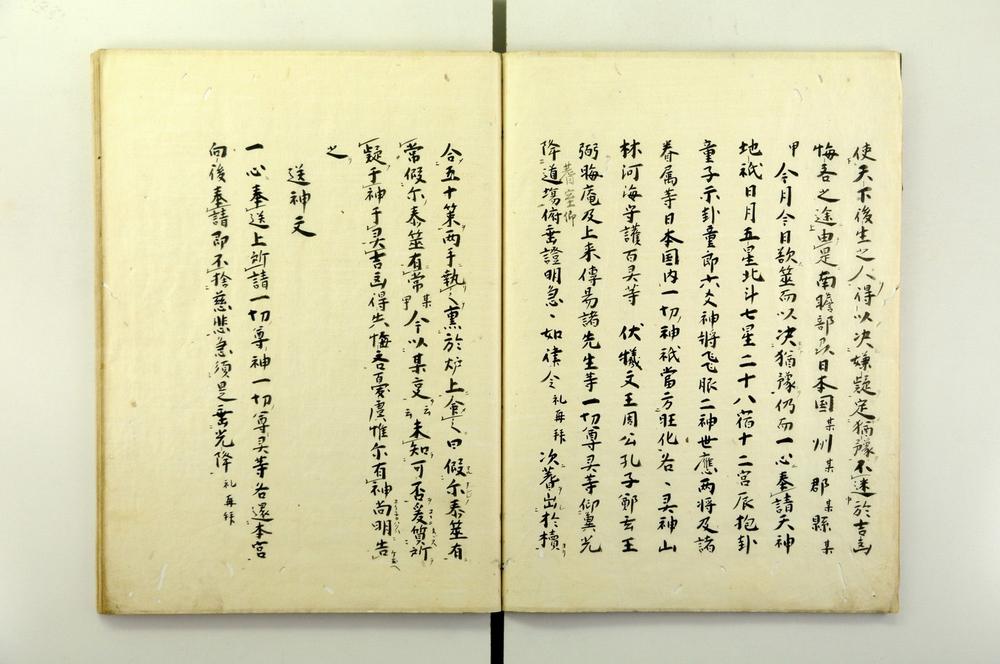 使天下後生之人得以决嫌疑定猶豫不迷於吉凶
悔吝之途由是南贍部州日本国某州某郡某縣某
甲今月今日欲筮而以决猶豫仍而一心奉請天神
地祇日月五星北斗七星二十八宿十二宮辰抱卦
童子示卦童郎六爻神将飛服二神世應兩将及諸
眷属等日本国内一切神祇當方旺化各、灵神山
林河海守護百灵等 伏犧文王周公孔子鄭玄王
弼晦庵及上来傳易諸先生等一切尊灵等仰冀光
降道場俯垂證明急、如律令礼再拜 次蓍出於櫝
蓍室仰
合五十策两手執之薫於炉上命之曰 假尔泰筮有
常假尔泰筮有常某甲今以某叓云云未知可否爰質所
疑于神于灵吉凶得失悔吝憂虞惟尔有神尚明告
之
送神文
一心奉送上所請一切尊神一切尊灵等各還本宮
向後奉請即不捨慈悲急須是垂光降礼再拜